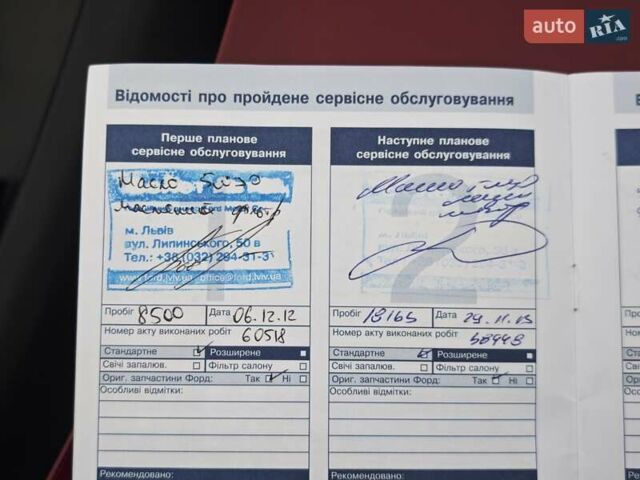 auto RIA.com
Відомості про пройдене сервісне обслуговування
Перше планове
сервісне обслуговування
Масло 5w30
м. Львів
вул. Липинського, 50 в
Тел.: +38 (032) 294-31-31
www.ford.lviv.ua office@ford.lviv.ua
Пробіг 8500 Дата 06.12.12
Номер акту виконаних робіт
60518
Стандартне Розширене
Свічі запалюв. Фільтр салону
Ориг. запчастини Форд: Так Ні
Особливі відмітки:
Рекомендовано:
Наступне планове
сервісне обслуговування
2
Масло
Пробіг 18165 Дата
Номер акту виконаних робіт
Стандартне Розширене
Свічі запалюв. Фільтр салону
Ориг. запчастини Форд: Так Ні
Особливі відмітки:
Рекомендовано: